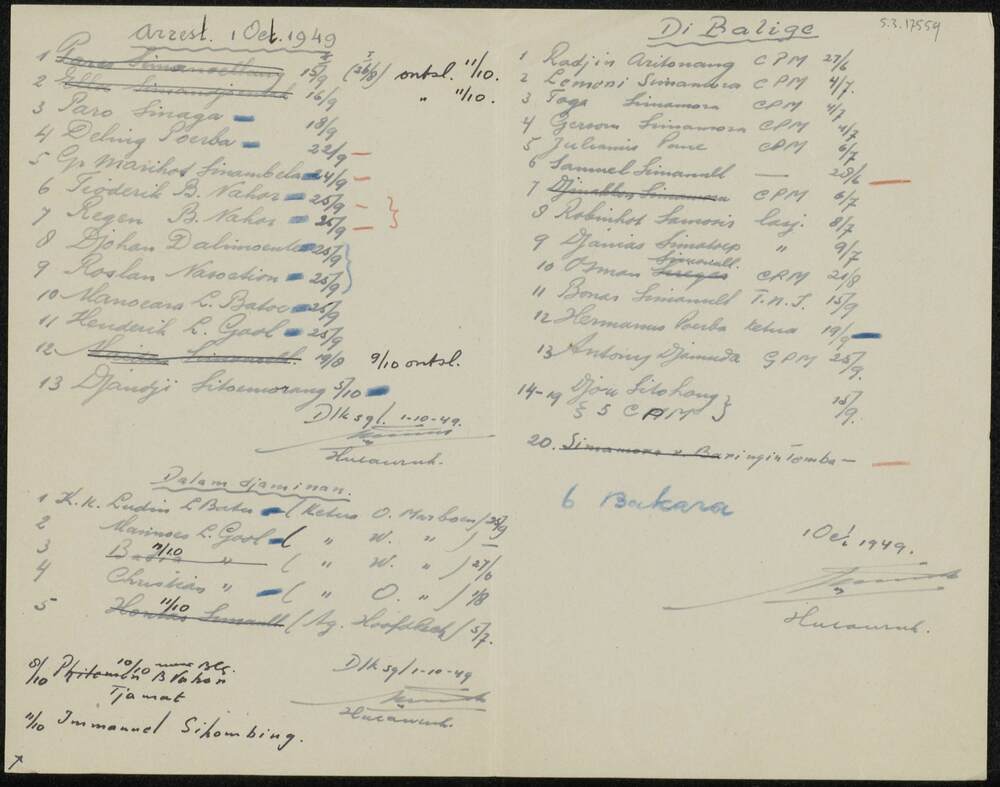 Arrest. 1 Oct. 1949
1 Pares Simanoellang 15/9 (26/9) ontsl. 11/10.
2 Simandjoentak 16/9 " 11/10.
3 Paro Sinaga 18/9
4 Deling Poerba 22/9
5 Gr Marihot Sinambela 24/9
6 Tioderik B. Nahor 25/9
7 Regen B. Nahor 25/9
8 Djohan Dalimoente 25/9
9 Roslan Nasoetion 25/9
10 Manocara L. Batoe 25/9
11 Henderik L. Gaol 25/9
12 19/8 9/10 ontsl.
13 Djandji Sitoemorang 5/10
Dlksgl. 1-10-49.
Hutauruk.
Dalam djaminan.
1 K.K. Ludin L Batu (Ketua O. Marboen) 25/9
2 Marinoes L. Gaol ( " W. " )
3 11/10 " ( " W. " ) 27/8
4 Christian " ( " O. " ) 1/8
5 11/10 Simanullt (Ag. Hoofdkech) 5/7.
10/10 naar Blg.
8/10 Philemon B Nahor
Tjamat
11/10 Immanuel Sihombing.
Dlksgl 1-10-49
Hutauruk.
S.3.17559
Di Balige
1 Radjin Aritonang CPM 27/6
2 Lemeni Simamora CPM 4/7.
3 Toga Simamora CPM 4/7
4 Gerson Simamora CPM 4/7
5 Julianus Pane CPM 6/7
6 Samuel Simanull — 28/6
7 Simamora CPM 6/7
8 Robinhot Samosir Lasj. 8/7
9 Djanias Simatoep " 9/7
Simanull.
10 Osman Siregar CPM 21/8
11 Bonar Simanull T.N.I. 15/9
12 Hermanus Poerba Ketua 19/9
13 Antony Djamuda CPM 25/9.
14-19 Djon Sitohang } 25/9.
& 5 CPM
20. Simamora v. Baringin Tomba —
6 Bakara
1 Oct 1949.
Hutauruk.